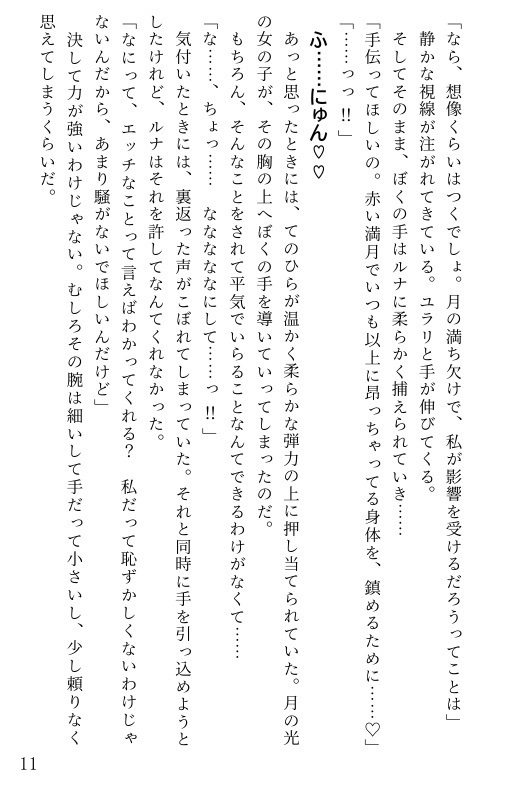 「なら、想像くらいはつくでしょ。月の満ち欠けで、私が影響を受けるだろうってことは」
静かな視線が注がれてきている。ユラリと手が伸びてくる。
そしてそのまま、ぼくの手はルナに柔らかく捕えられていき……
「手伝ってほしいの。赤い満月でいつも以上に昂っちゃってる身体を、鎮めるために……♡」
「……っっ‼」
ふ……にゅん♡♡
あっと思ったときには、てのひらが温かく柔らかな弾力の上に押し当てられていた。月の光
の女の子が、その胸の上へぼくの手を導いていってしまったのだ。
もちろん、そんなことをされて平気でいらることなんてできるわけがなくて……
「な……、ちょっ……　なななななにして……っ‼」
気付いたときには、裏返った声がこぼれてしまっていた。それと同時に手を引っ込めようと
したけれど、ルナはそれを許してなんてくれなかった。
「なにって、エッチなことって言えばわかってくれる？　私だって恥ずかしくないわけじゃ
ないんだから、あまり騒がないでほしいんだけど」
決して力が強いわけじゃない。むしろその腕は細いして手だって小さいし、少し頼りなく
思えてしまうくらいだ。
11